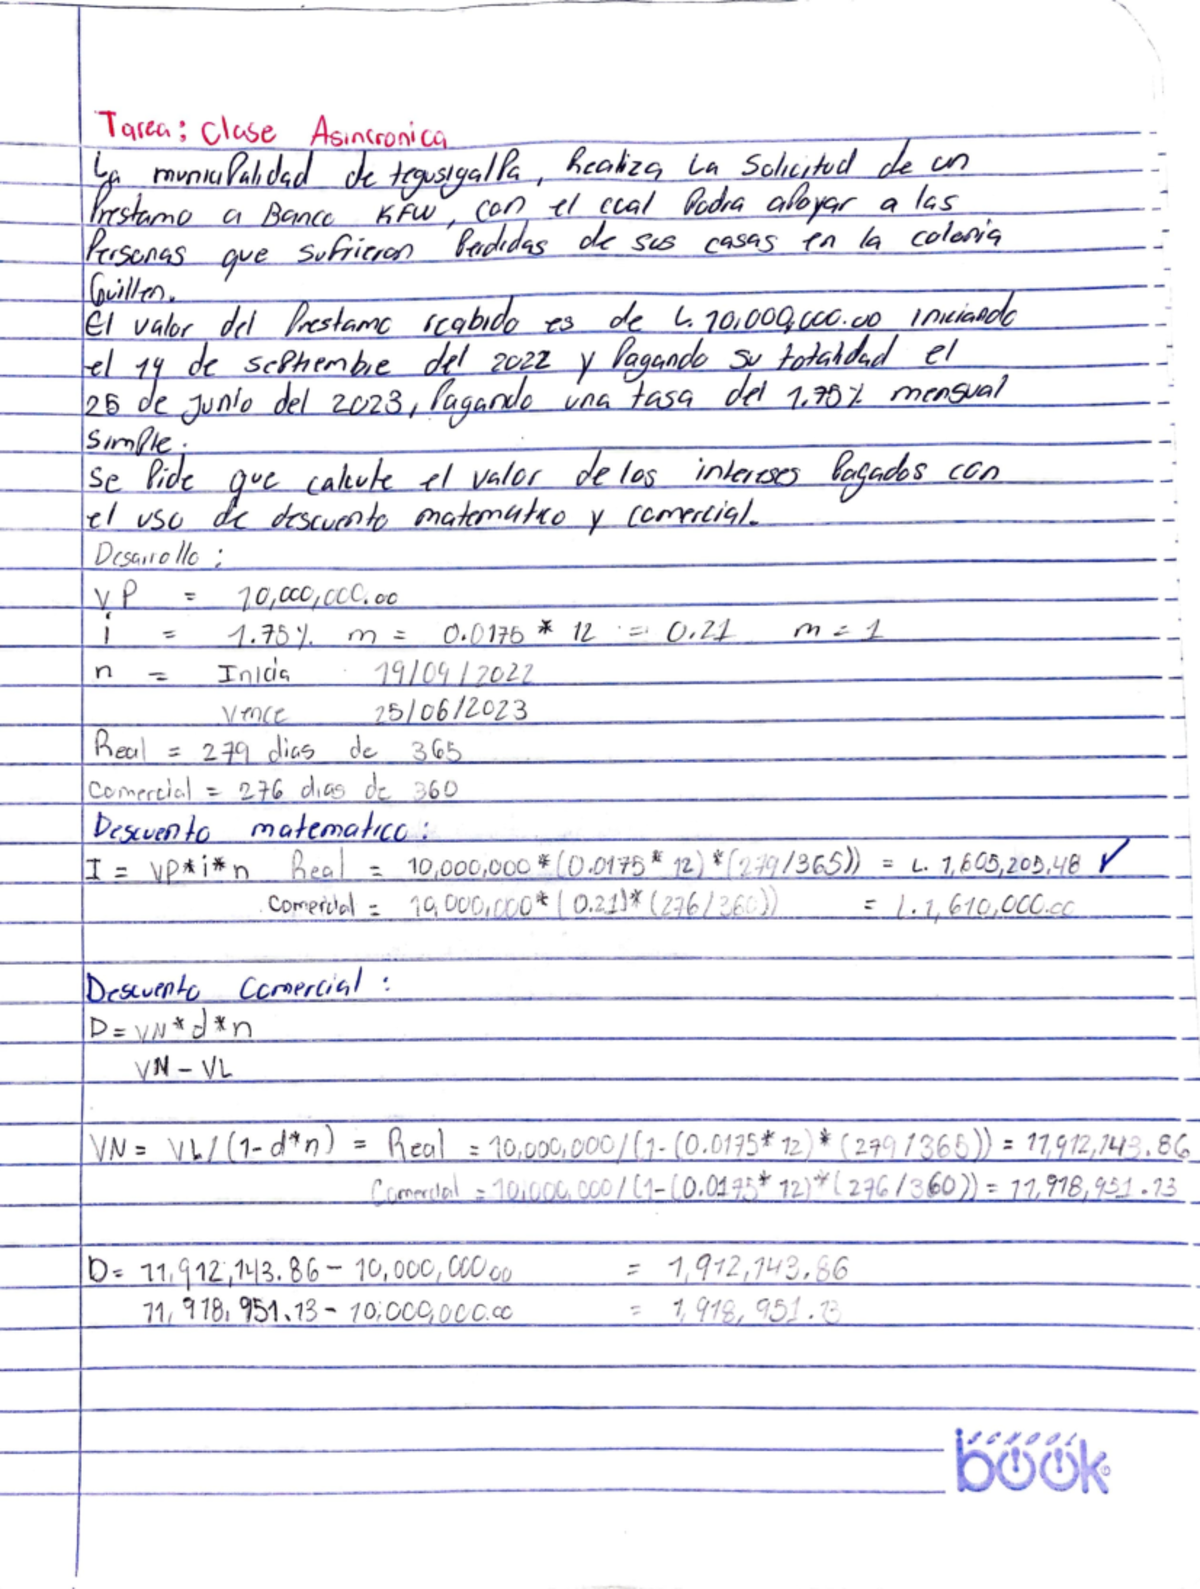 Tarea: Clase Asincronica
La municipalidad de tegusigalpa, Realiza La Solicitud de un
Prestamo a Banco KFW, con el cual Podra apoyar a las
Personas que sufrieron Perdidas de sus casas en la colonia
Guillen.
El valor del Prestamo recabido es de L. 10,000,000.00 iniciando
el 19 de septiembre del 2022 y Pagando su totalidad el
25 de junio del 2023, Pagando una tasa del 1.75% mensual
simple.
Se Pide que calcule el valor de los intereses Pagados con
el uso de descuento matematico y comercial.
Desarrollo:
VP = 10,000,000.00
i = 1.75% m = 0.0175 * 12 = 0.21 m = 1
n = Inicia 19/09/2022
Vence 25/06/2023
Real = 279 dias de 365
Comercial = 276 dias de 360
Descuento matematico:
I = VP*i*n Real = 10,000,000*(0.0175*12)*(279/365)) = L. 1,605,205.48 ✓
Comercial = 10,000,000*(0.21)*(276/360)) = L. 1,610,000.00
Descuento Comercial:
D = VN*d*n
VN - VL
VN = VL/(1-d*n) = Real = 10,000,000/(1-(0.0175*12)*(279/365)) = 11,912,143.86
Comercial = 10,000,000/(1-(0.0175*12)*(276/360)) = 11,918,951.13
D = 11,912,143.86 - 10,000,000.00 = 1,912,143.86
11,918,951.13 - 10,000,000.00 = 1,918,951.13
book